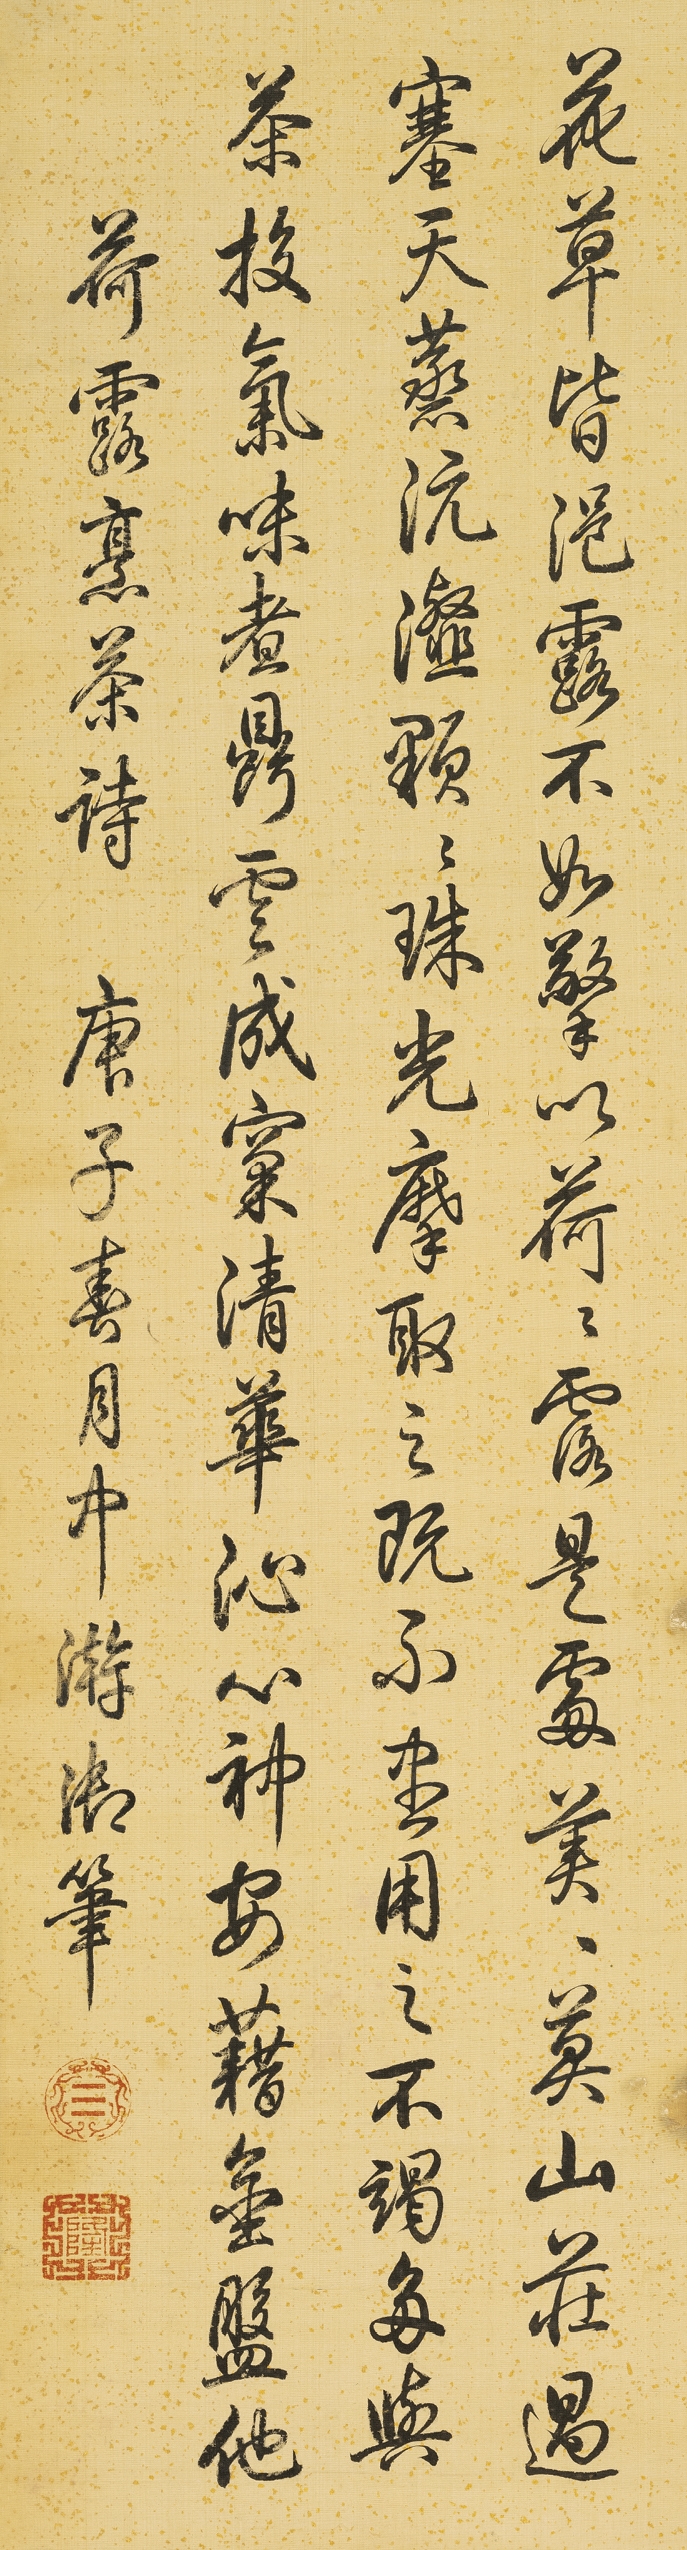 花草皆浥露不如擎以荷〻露是處美〻莫山莊過
塞天蒸沆瀣顆〻珠光摩取之既不盡用之不竭多與
茶投氣味煮鼎雲成窠清華沁心神安藉金盤他
荷露烹茶詩 庚子春月中澣御筆
☰
隆